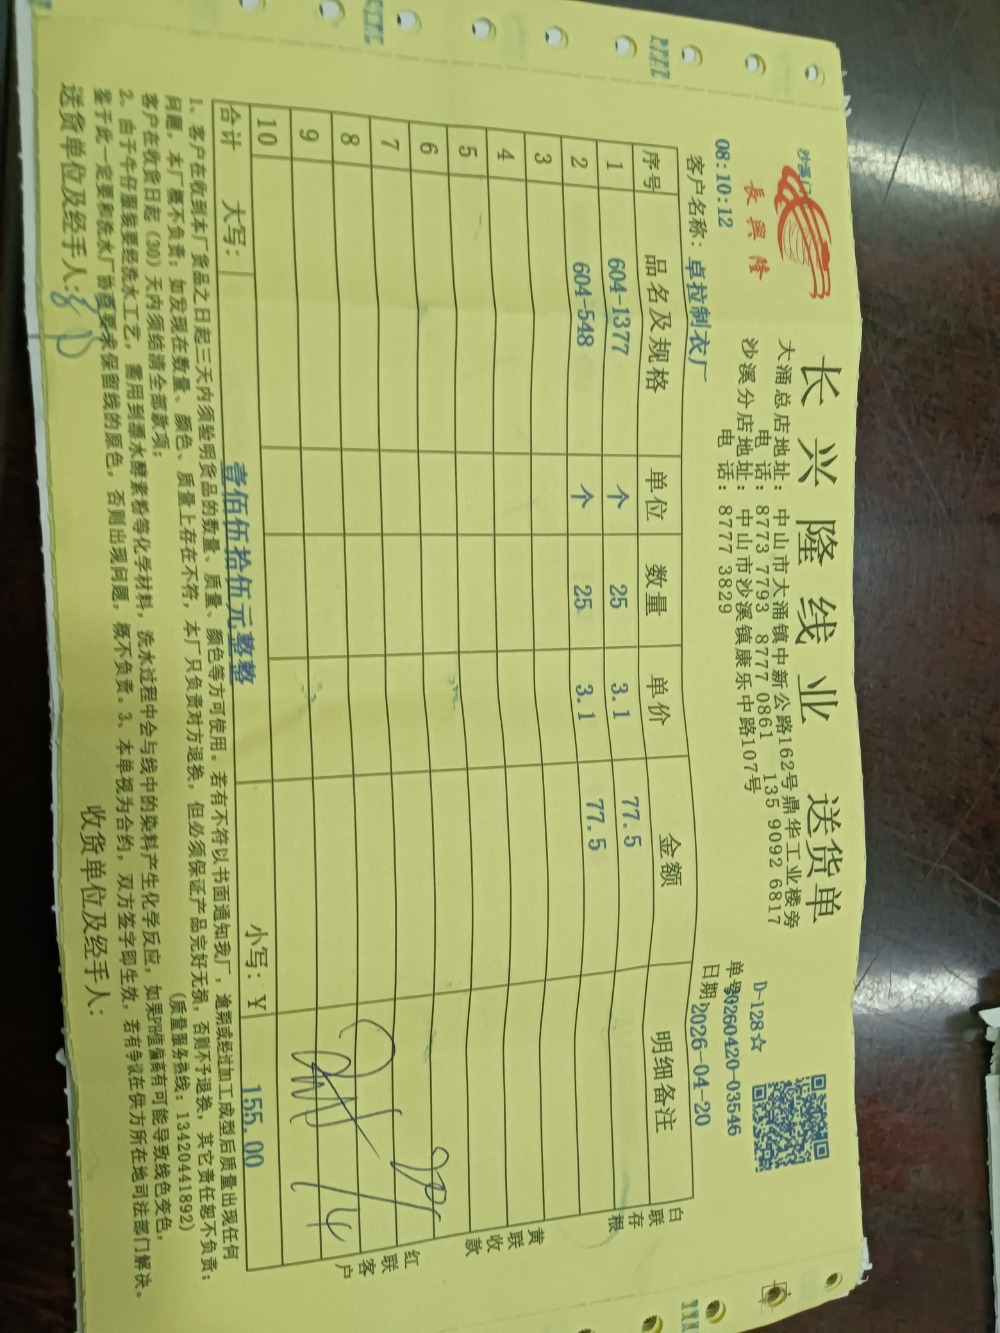 長興隆
长兴隆线业 送货单
大涌总店地址：中山市大涌镇中新公路162号鼎华工业楼旁
电话：8773 7793 8777 0861 135 9092 6817
沙溪分店地址：中山市沙溪镇康乐中路107号
电话：8777 3829
D-128☆
单号20260420-03546
日期:2026-04-20
08:10:12
客户名称：卓拉制衣厂
序号 品名及规格 单位 数量 单价 金额 明细备注
1 604-1377 个 25 3.1 77.5
2 604-548 个 25 3.1 77.5
3
4
5
6
7
8
9
10
合计 大写：壹佰伍拾伍元整整 小写：￥ 155.00
白联存根
黄联收款
红联客户
1、客户在收到本厂货品之日起三天内须验明货品的数量、质量、颜色等方可使用。若有不符以书面通知我厂，逾期或经过加工成型后质量出现任何
问题，本厂概不负责；如发现在数量、颜色、质量上存在不符，本厂只负责对方退换，但必须保证产品完好无损，否则不予退换，其它责任恕不负责；
客户在收货日起（30）天内须结清全部款项； （质量服务热线：13420441892）
2、由于牛仔服装要经洗水工艺，需用到漂水酵素粉等化学材料，洗水过程中会与线中的染料产生化学反应，如果PH值偏高有可能导致线色变色，
鉴于此一定要和洗水厂协商要求保留线的原色，否则出现问题，概不负责。3、本单视为合约，双方签字即生效，若有争议在供方所在地司法部门解决。
送货单位及经手人：
收货单位及经手人：